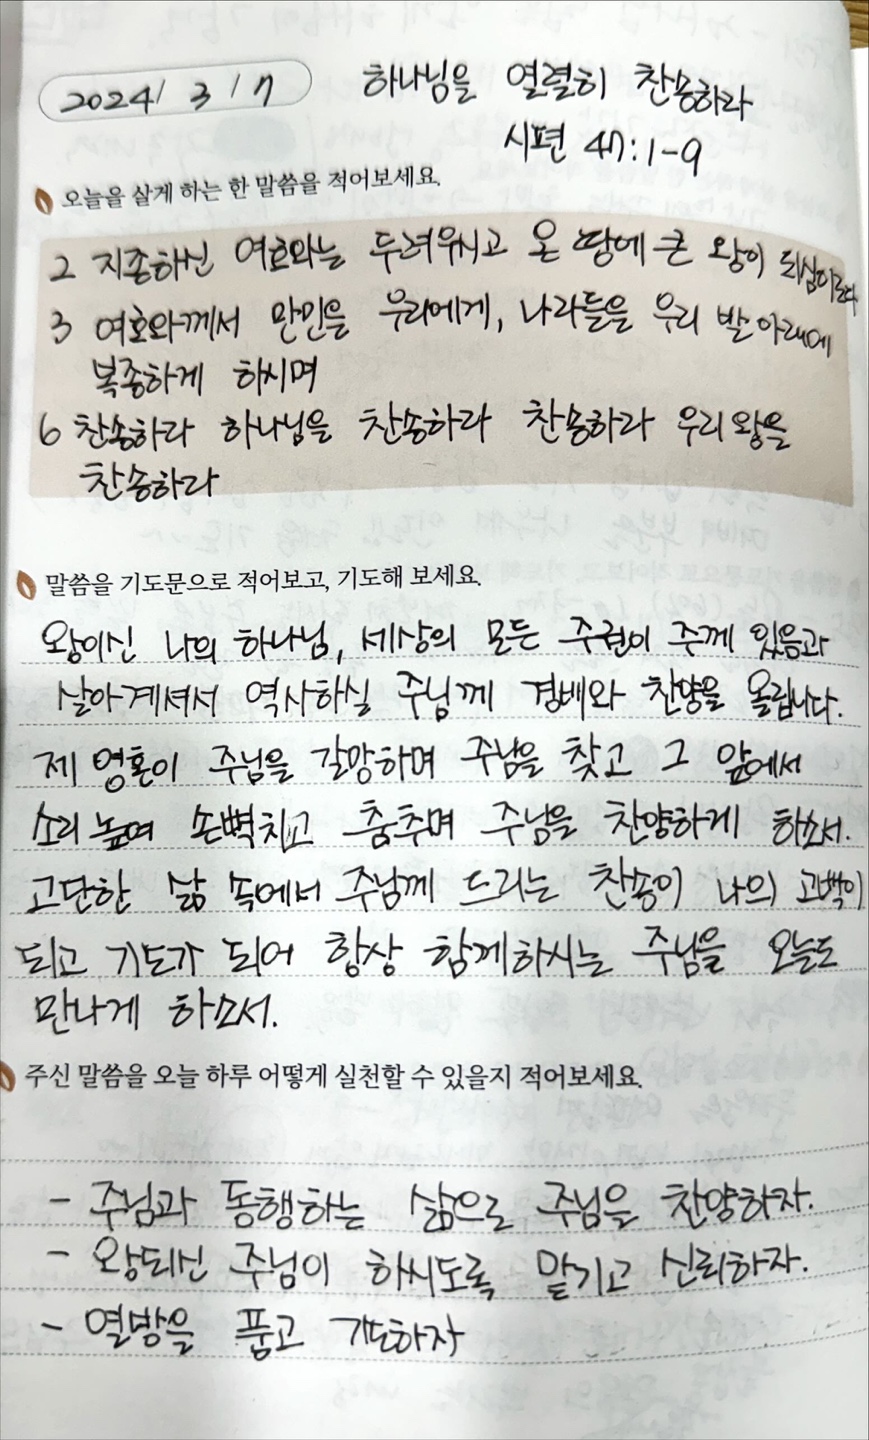 2024/ 3 / 7
하나님을 열렬히 찬송하라
시편 47:1-9
오늘을 살게 하는 한 말씀을 적어보세요.
2 지존하신 여호와는 두려우시고 온 땅에 큰 왕이 되심이로다
3 여호와께서 만민을 우리에게, 나라들을 우리 발 아래에
복종하게 하시며
6 찬송하라 하나님을 찬송하라 찬송하라 우리 왕을
찬송하라
말씀을 기도문으로 적어보고, 기도해 보세요.
왕이신 나의 하나님, 세상의 모든 주권이 주께 있음과
살아계셔서 역사하실 주님께 경배와 찬양을 올립니다.
제 영혼이 주님을 갈망하며 주님을 찾고 그 앞에서
소리 높여 손뼉치고 춤추며 주님을 찬양하게 하소서.
고단한 삶 속에서 주님께 드리는 찬송이 나의 고백이
되고 기도가 되어 항상 함께하시는 주님을 오늘도
만나게 하소서.
주신 말씀을 오늘 하루 어떻게 실천할 수 있을지 적어보세요.
- 주님과 동행하는 삶으로 주님을 찬양하자.
- 왕되신 주님이 하시도록 맡기고 신뢰하자.
- 열방을 품고 기도하자